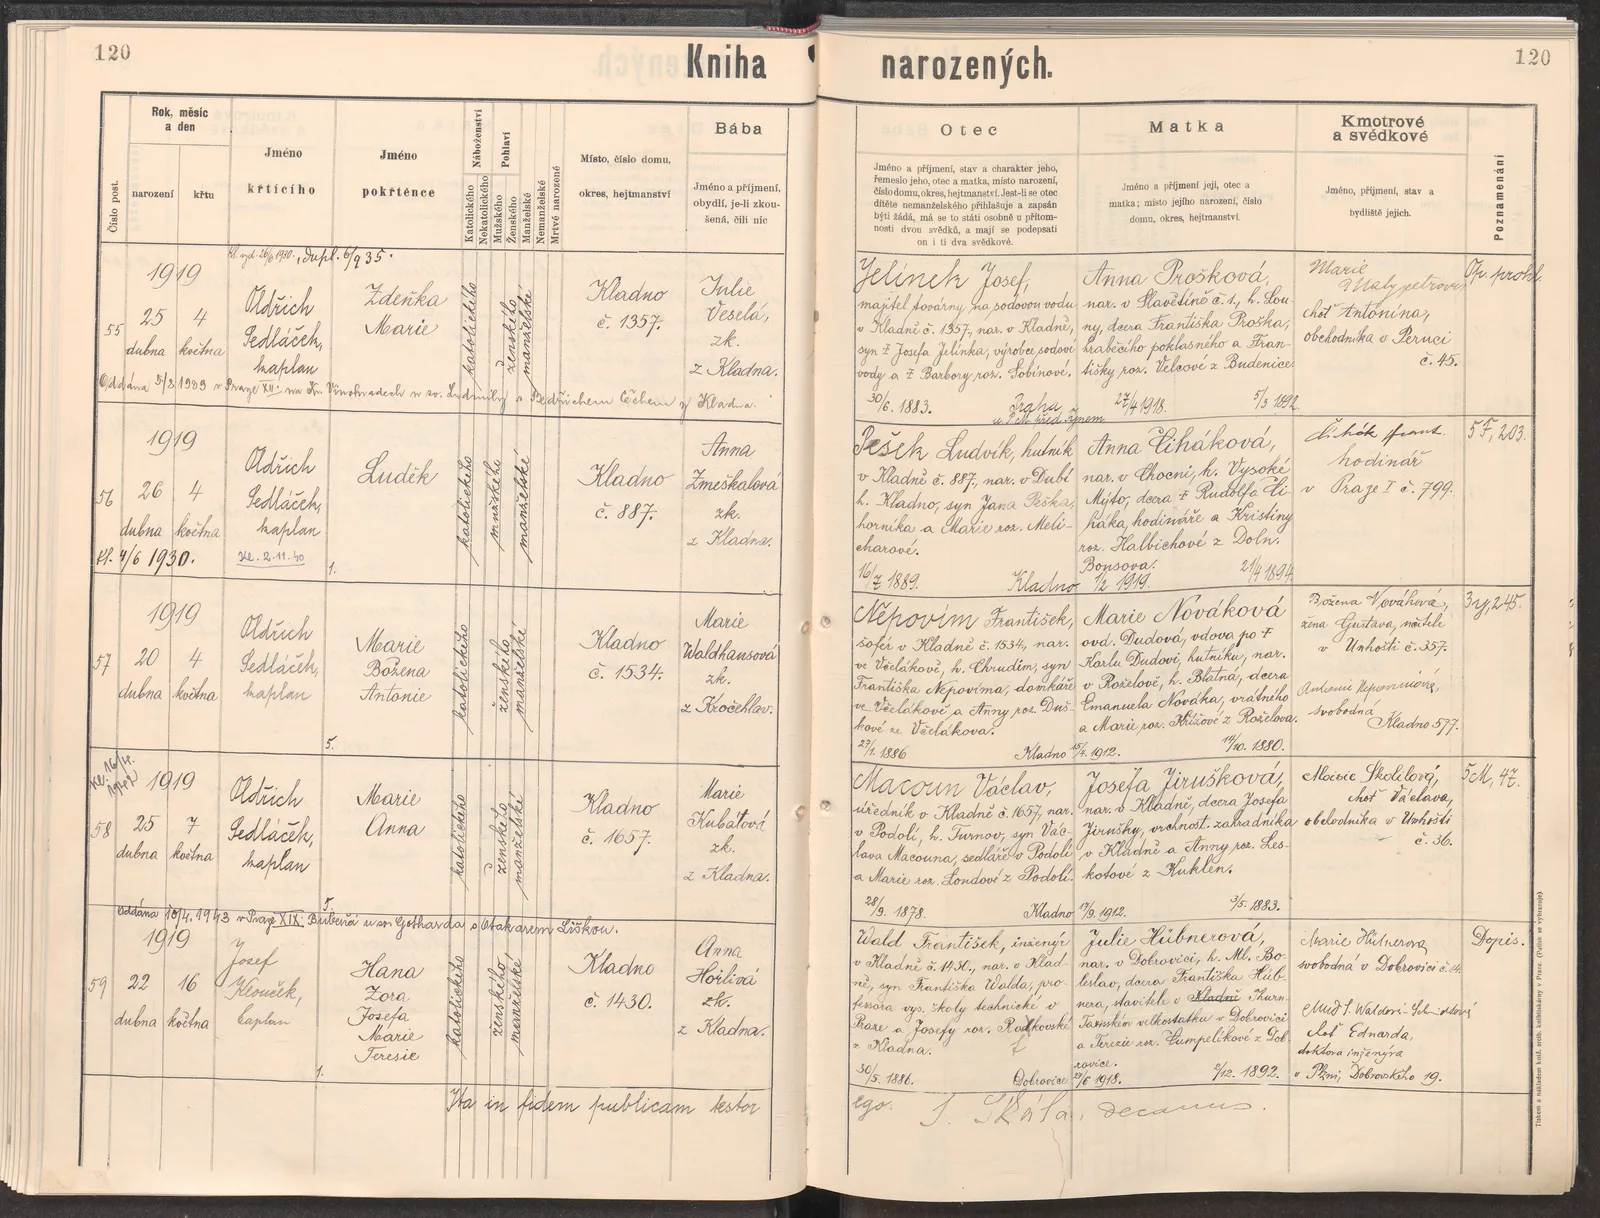 120
Kniha narozených.
120
Číslo post.
Rok, měsíc
a den
narození
křtu
Jméno
křtícího
Jméno
pokřtěnce
Náboženství
Katolického
Nekatolického
Pohlaví
Mužského
Ženského
Manželské
Nemanželské
Mrtvě narozené
Místo, číslo domu,
okres, hejtmanství
Bába
Jméno a příjmení,
obydlí, je-li zkou-
šená, čili nic
Otec
Jméno a příjmení, stav a charakter jeho,
řemeslo jeho, otec a matka, místo narození,
číslo domu, okres, hejtmanství. Jest-li se otec
dítěte nemanželského přihlašuje a zapsán
býti žádá, má se to státi osobně u přítom-
nosti dvou svědků, a mají se podepsati
on i ti dva svědkové.
Matka
Jméno a příjmení její, otec a
matka; místo jejího narození, číslo
domu, okres, hejtmanství.
Kmotrové
a svědkové
Jméno, příjmení, stav a
bydliště jejich.
Poznamenání
Kl. vyd. 26/6 1930., dupl. 6/9 35.
55
1919
25 4
dubna května
Oldřich
Sedláček,
kaplan
Zdeňka
Marie
katolického
ženského
manželské
Kladno
č. 1357.
Julie
Veselá,
zk.
z Kladna.
Oddána 5/8 1939 v Praze XII. na Kr. Vinohradech u sv. Ludmily s Bedřichem Čechem z Kladna.
Jelínek Josef,
majitel továrny na sodovou vodu
v Kladně č. 1357, nar. v Kladně,
syn † Josefa Jelínka, výrobce sodové
vody a † Barbory roz. Sobínové.
30/6. 1883. Praha
Anna Prošková,
nar. v Slavětíně č. 1., h. Lou-
ny, dcera Františka Proška,
hraběcího poklasného a Fran-
tišky roz. Velcové z Budenice.
27/4 1918. 5/3 1892.
Marie
choť Antonína,
obchodníka v Peruci
č. 45.
56
1919
26 4
dubna května
Kl. 4/6 1930.
Oldřich
Sedláček,
kaplan
Kl. 2.11.40
Luděk
1.
katolického
mužského
manželské
Kladno
č. 887.
Anna
Zmeškalová
zk.
z Kladna.
Pešek Ludvík, hutník
v Kladně č. 887, nar. v Dubí
h. Kladno, syn Jana Peška,
horníka a Marie roz. Meli-
charové.
16/7 1889. Kladno
Anna Čiháková,
nar. v Chocni, h. Vysoké
Mýto, dcera † Rudolfa Či-
háka, hodináře a Kristiny
roz. Halbichové z Doln.
Bousova.
1/2 1919. 21/7 1894.
Čihák Frant.
hodinář
v Praze I č. 799.
5 F, 203.
57
1919
20 4
dubna května
Oldřich
Sedláček,
kaplan
Marie
Božena
Antonie
5.
katolického
ženského
manželské
Kladno
č. 1534.
Marie
Waldhansová
zk.
z Kročehlav.
Nepovím František,
šofér v Kladně č. 1534, nar.
ve Včelákově, h. Chrudim, syn
Františka Nepovíma, domkáře
ve Včelákově a Anny roz. Duš-
kové ze Včelákova.
27/1. 1886 Kladno
Marie Nováková
ovd. Dudová, vdova po †
Karlu Dudovi, hutníku, nar.
v Roželově, h. Blatná, dcera
Emanuela Nováka, vrátného
a Marie roz. Křížové z Roželova.
15/4. 1912. 14/10. 1880.
Božena Nováková,
žena Gustava, učitele
v Unhošti č. 357.
Antonie Nepovímová,
svobodná
Kladno 577.
58
1919
25 7
dubna května
Oldřich
Sedláček,
kaplan
Marie
Anna
5.
katolického
ženského
manželské
Kladno
č. 1657.
Marie
Kubátová
zk.
z Kladna.
Oddána 10/4. 1943 v Praze XIX. Bubeneč u sv. Gotharda s Otakarem Liškou.
Macoun Václav,
úředník v Kladně č. 1657, nar.
v Podolí, h. Turnov, syn Vác-
lava Macouna, sedláře v Podolí
a Marie roz. Londové z Podolí.
28/9. 1878. Kladno
Josefa Jirušková,
nar. v Kladně, dcera Josefa
Jirušky, vrchnost. zahradníka
v Kladně a Anny roz. Les-
kotové z Kuklen.
17/9. 1912. 3/5. 1883.
Marie Škodilová,
choť Václava,
obchodníka v Unhošti
č. 36.
5 M, 47.
59
1919
22 16
dubna května
Josef
Klouček,
kaplan
Hana
Zora
Josefa
Marie
Terezie
1.
katolického
ženského
manželské
Kladno
č. 1430.
Anna
Horlivá
zk.
z Kladna.
Wald František, inženýr
v Kladně č. 1430., nar. v Klad-
ně, syn Františka Walda, pro-
fessora vys. školy technické v
Praze a Josefy roz. Radkovské
z Kladna.
30/5. 1886. Dobrovice
Julie Hübnerová,
nar. v Dobrovici, h. Ml. Bo-
leslav, dcera Františka Hüb-
nera, stavitele v Kladně Thurn-
Taxisském velkostatku v Dobrovici
a Terezie roz. Gumpelíkové z Dob-
rovice.
27/6 1918. 2/12. 1892.
Marie Hübnerova
svobodná v Dobrovici
choť Eduarda,
doktora inženýra
v Plzni, Dobrovského 19.
Dopis.
Ita in fidem publicam testor
ego: J. Škála, decanus.
Tiskem a nákladem knč. arcib. knihtiskárny v Praze. (Patisk se vyhrazuje)